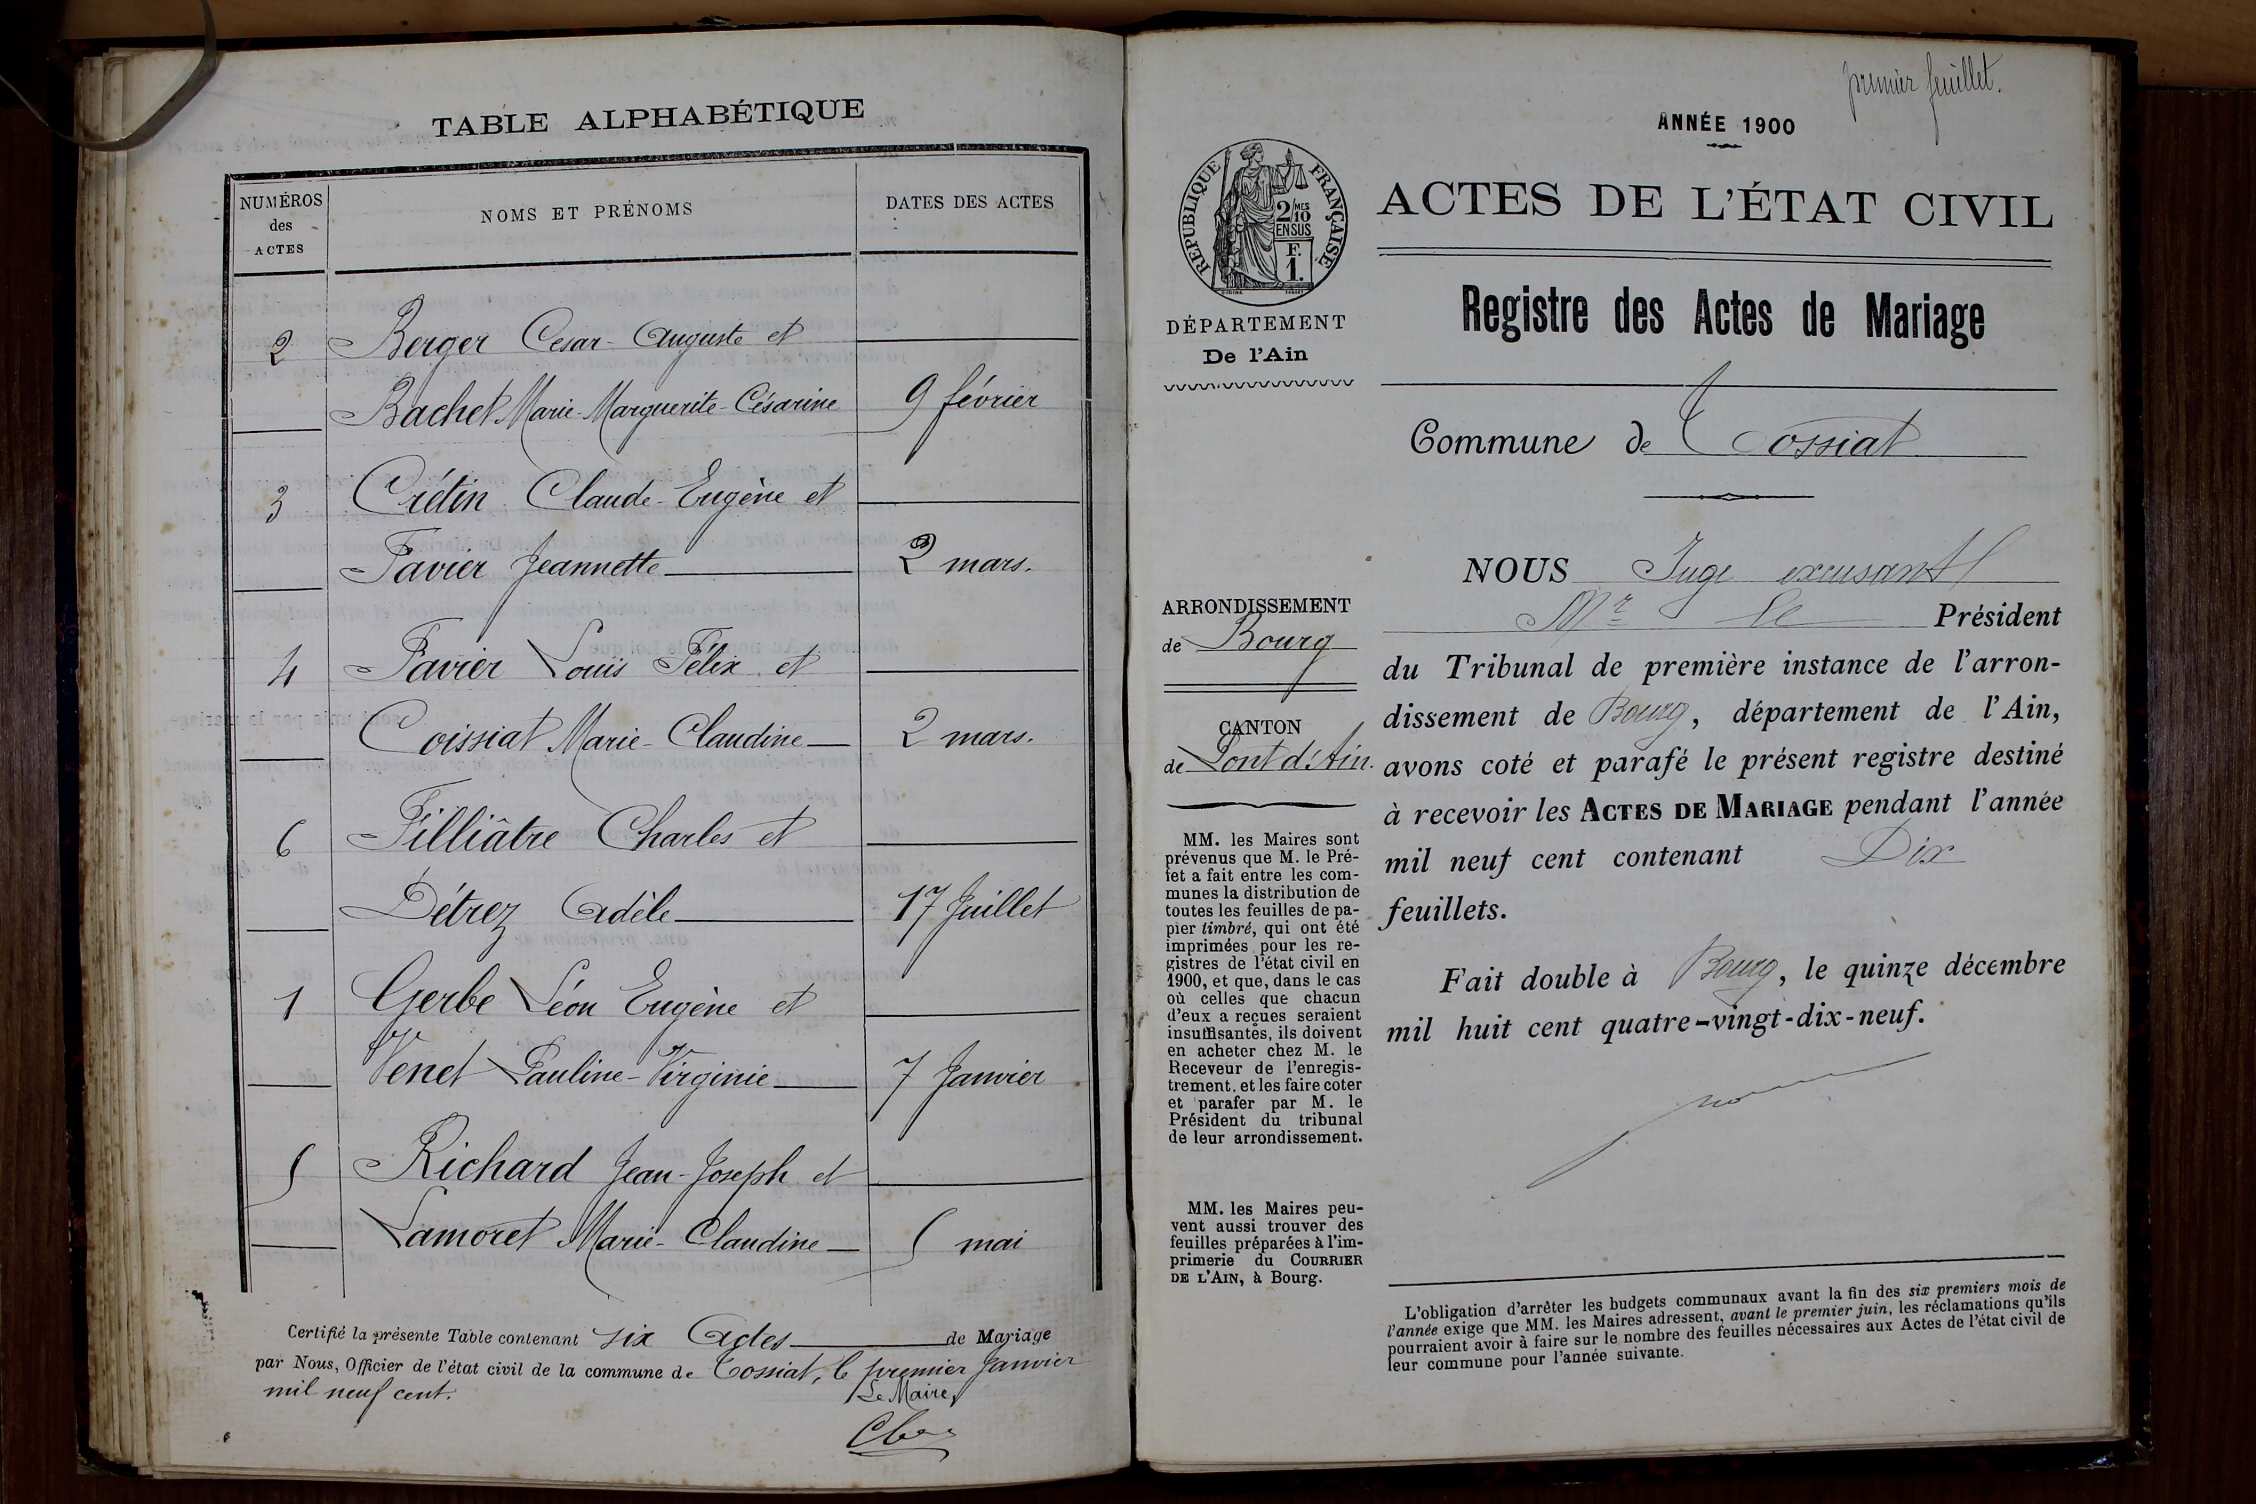 TABLE ALPHABÉTIQUE
NUMÉROS des ACTES
NOMS ET PRÉNOMS
DATES DES ACTES
2 Berger Cesar-Auguste et
Bachet Marie-Marguerite-Césarine 9 février
3 Crétin Claude-Eugène et
Favier Jeannette 2 mars.
4 Favier Louis Félix et
Coissiat Marie-Claudine 2 mars.
6 Filliâtre Charles et
Détrez Adèle 17 Juillet
1 Gerbe Léon Eugène et
Venet Pauline-Virginie 7 Janvier
5 Richard Jean-Joseph et
Lamoret Marie-Claudine 5 mai
Certifié la présente Table contenant six Actes de Mariage
par Nous, Officier de l'état civil de la commune de Tossiat, le premier Janvier
mil neuf cent.
Le Maire,
premier feuillet.
ANNÉE 1900
RÉPUBLIQUE FRANÇAISE
2/MES
10
EN SUS
F.
1.
DÉPARTEMENT
De l'Ain
ACTES DE L'ÉTAT CIVIL
Registre des Actes de Mariage
Commune de Tossiat
ARRONDISSEMENT
de Bourg
CANTON
de Pont d'Ain.
MM. les Maires sont
prévenus que M. le Pré-
fet a fait entre les com-
munes la distribution de
toutes les feuilles de pa-
pier timbré, qui ont été
imprimées pour les re-
gistres de l'état civil en
1900, et que, dans le cas
où celles que chacun
d'eux a reçues seraient
insuffisantes, ils doivent
en acheter chez M. le
Receveur de l'enregis-
trement. et les faire coter
et parafer par M. le
Président du tribunal
de leur arrondissement.
MM. les Maires peu-
vent aussi trouver des
feuilles préparées à l'im-
primerie du COURRIER
DE L'AIN, à Bourg.
NOUS Juge excusant
Mr le Président
du Tribunal de première instance de l'arron-
dissement de Bourg, département de l'Ain,
avons coté et parafé le présent registre destiné
à recevoir les ACTES DE MARIAGE pendant l'année
mil neuf cent contenant Dix
feuillets.
Fait double à Bourg, le quinze décembre
mil huit cent quatre-vingt-dix-neuf.
L'obligation d'arrêter les budgets communaux avant la fin des six premiers mois de
l'année exige que MM. les Maires adressent, avant le premier juin, les réclamations qu'ils
pourraient avoir à faire sur le nombre des feuilles nécessaires aux Actes de l'état civil de
leur commune pour l'année suivante.